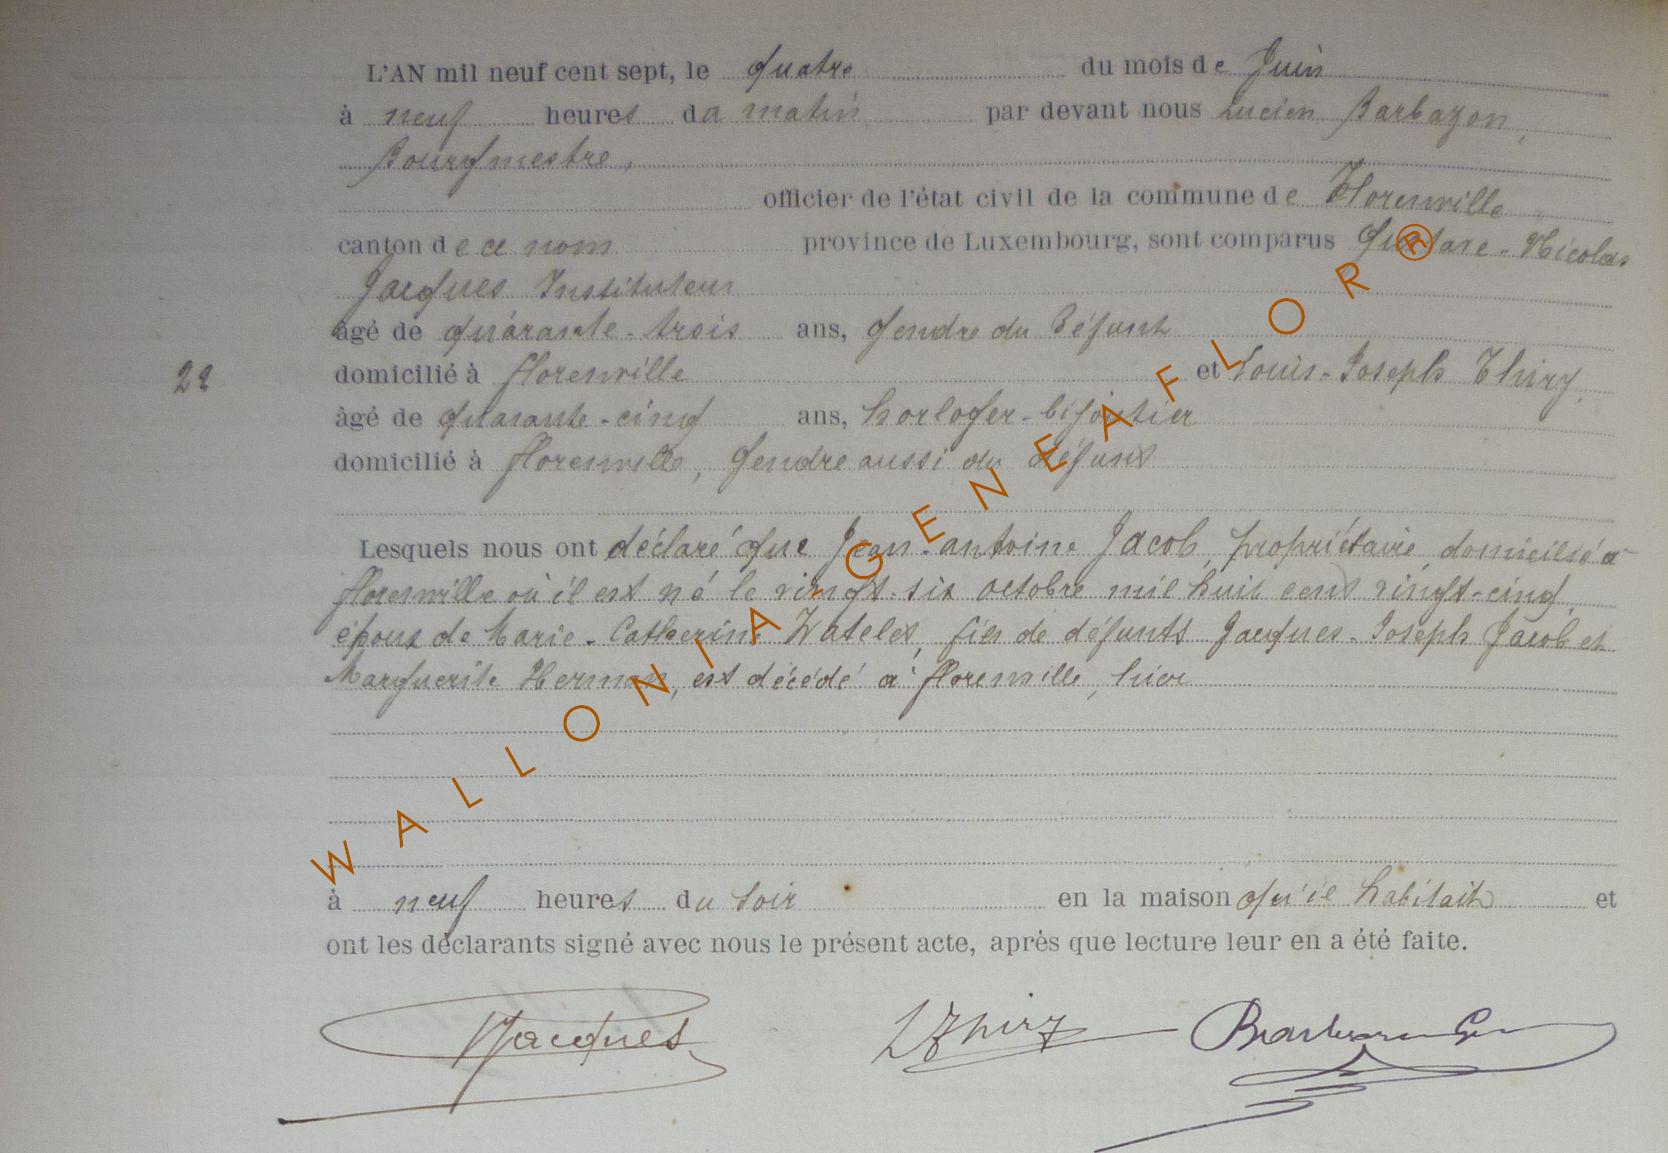 L'AN mil neuf cent sept, le quatre du mois de Juin
à neuf heures du matin par devant nous Lucien Barbazon,
Bourgmestre,
officier de l'état civil de la commune de Florenville
canton de ce nom province de Luxembourg, sont comparus Gustave-Nicolas
Jacques Instituteur
âgé de quarante-trois ans, gendre du Défunt
22 domicilié à florenville et Louis-Joseph Thiry,
âgé de quarante-cinq ans, horloger-bijoutier
domicilié à florenville, gendre aussi du défunt
Lesquels nous ont déclaré que Jean-antoine Jacob, propriétaire, domicilié à
florenville où il est né le vingt-six octobre mil huit cent vingt-cinq,
époux de Marie-Catherine Watelet, fils de défunts Jacques-Joseph Jacob et
Marguerite Herman, est décédé à florenville, hier
à neuf heures du soir en la maison qu'il habitait et
ont les déclarants signé avec nous le présent acte, après que lecture leur en a été faite.
Jacques LThiry Barbazon
WALLONIA-GENEAFLOR®